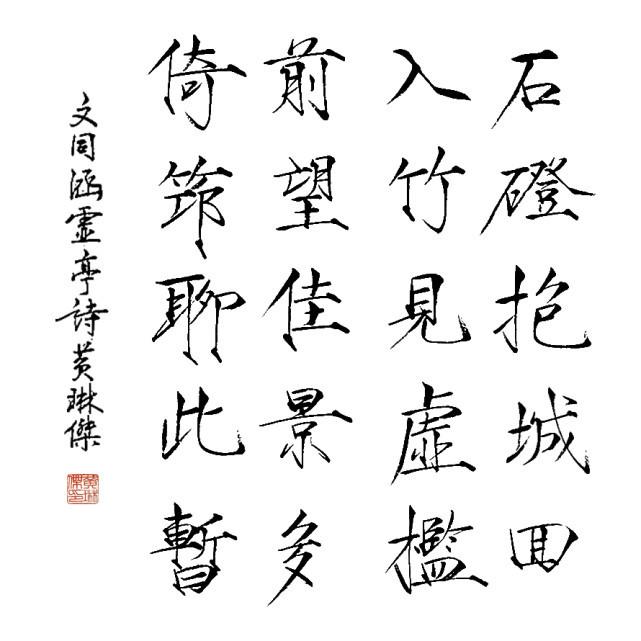 石磴抱城回
入竹見虛檻
前望佳景多
倚筇聊此暫
文同涵虛亭詩黃琳傑